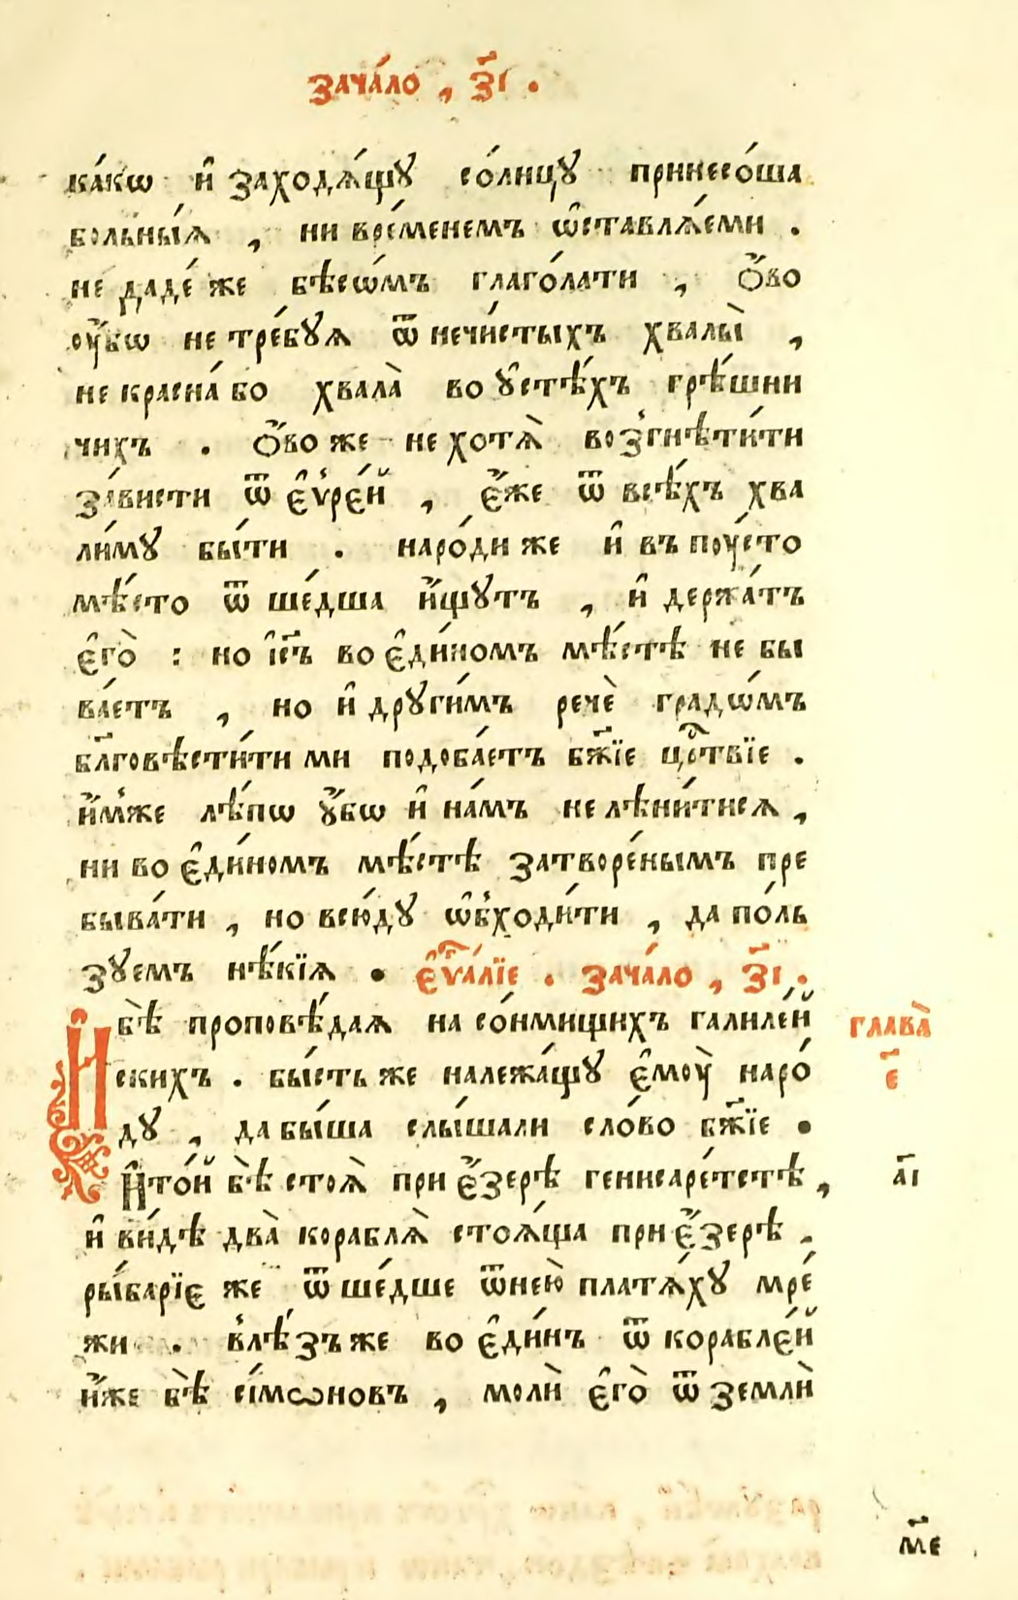 зача́ло , з҃і .
ка́кѡ и҆ заходѧ́щꙋ со́лнцꙋ принесо́ша
больны́ѧ , ни вре́менемъ ѡ҆ставлѧ́еми .
не даде́ же бѣсѡ́мъ глаго́лати , ѻ҆́во
оу҆́бѡ не тре́бꙋѧ ѿ нечи́стыхъ хвалы̀ ,
не красна́ бо хвала̀ во ᲂу҆стѣ́хъ грѣ́шни
чихъ . ѻ҆́во же не хотѧ̀ возгнѣти́ти
за́висти ѿ є҆ѵре́й , є҆́же ѿ всѣ́хъ хва
ли́мꙋ бы́ти . наро́ди же и҆ въ пꙋ́сто
мѣ́сто ѿ ше́дша и҆́щꙋтъ , и҆ держа́тъ
є҆го̀ : но і҆с҃ъ во є҆ди́номъ мѣ́стѣ не бы
ва́етъ , но и҆ дрꙋги́мъ речѐ градѡ́мъ
бл҃говѣсти́ти ми подоба́етъ бж҃їе црⷭ҇твїе .
и҆́мже лѣ́пѡ ᲂу҆́бѡ и҆ на́мъ не лѣни́тисѧ ,
ни во є҆ди́номъ мѣ́стѣ затворе́нымъ пре
быва́ти , но всю́дꙋ ѡ҆бходи́ти , да по́ль
зꙋемъ нѣ́кїѧ . є҆ѵⷢ҇а́лїе . зача́ло , з҃і .
И бѣ̀ проповѣ́даѧ на со́нмищихъ галиле́й
скихъ . бы́сть же належа́щꙋ є҆мꙋ̀ наро́
дꙋ , да бы́ша слы́шали сло́во бж҃їе .
И҆ то́й бѣ̀ стоѧ̀ при є҆́зерѣ генисаре́тстѣ ,
и҆ ви́дѣ два̀ кораблѧ̀ стоѧ́ща при є҆́зерѣ ,
ры́барїє же ѿ ше́дше ѿ нею̀ платѧ́хꙋ мре́
жи . влѣ́зъ же во є҆ди́нъ ѿ корабле́й
и҆́же бѣ̀ сі́мѡновъ , молѝ є҆го̀ ѿ землѝ
глава̀
е҃
а҃і
м҃е